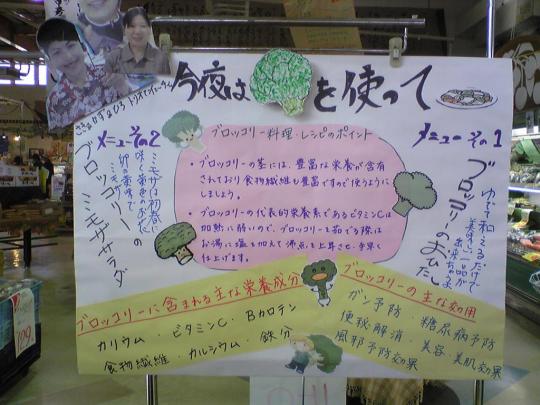 今夜は を使って
メニューその1
ブロッコリーのおひたし
ゆでて和えるだけで
美味しい一品が
出来ちゃうよ
メニューその2
ブロッコリーの
ミモザサラダ
ブロッコリー料理・レシピのポイント
・ブロッコリーの茎には、豊富な栄養が含有
されており食物繊維も豊富ですので使うように
しましょう。
・ブロッコリーの代表的栄養素であるビタミンCは
加熱に弱いので、ブロッコリーを茹でる際は
お湯に塩を加えて沸点を上昇させ、手早く
仕上げます。
ブロッコリーに含まれる主な栄養成分
カリウム・ビタミンC・Bカロテン
食物繊維・カルシウム・鉄分
ブロッコリーの主な効用
ガン予防・糖尿病予防
便秘解消・美容・美肌効果
風邪予防効果